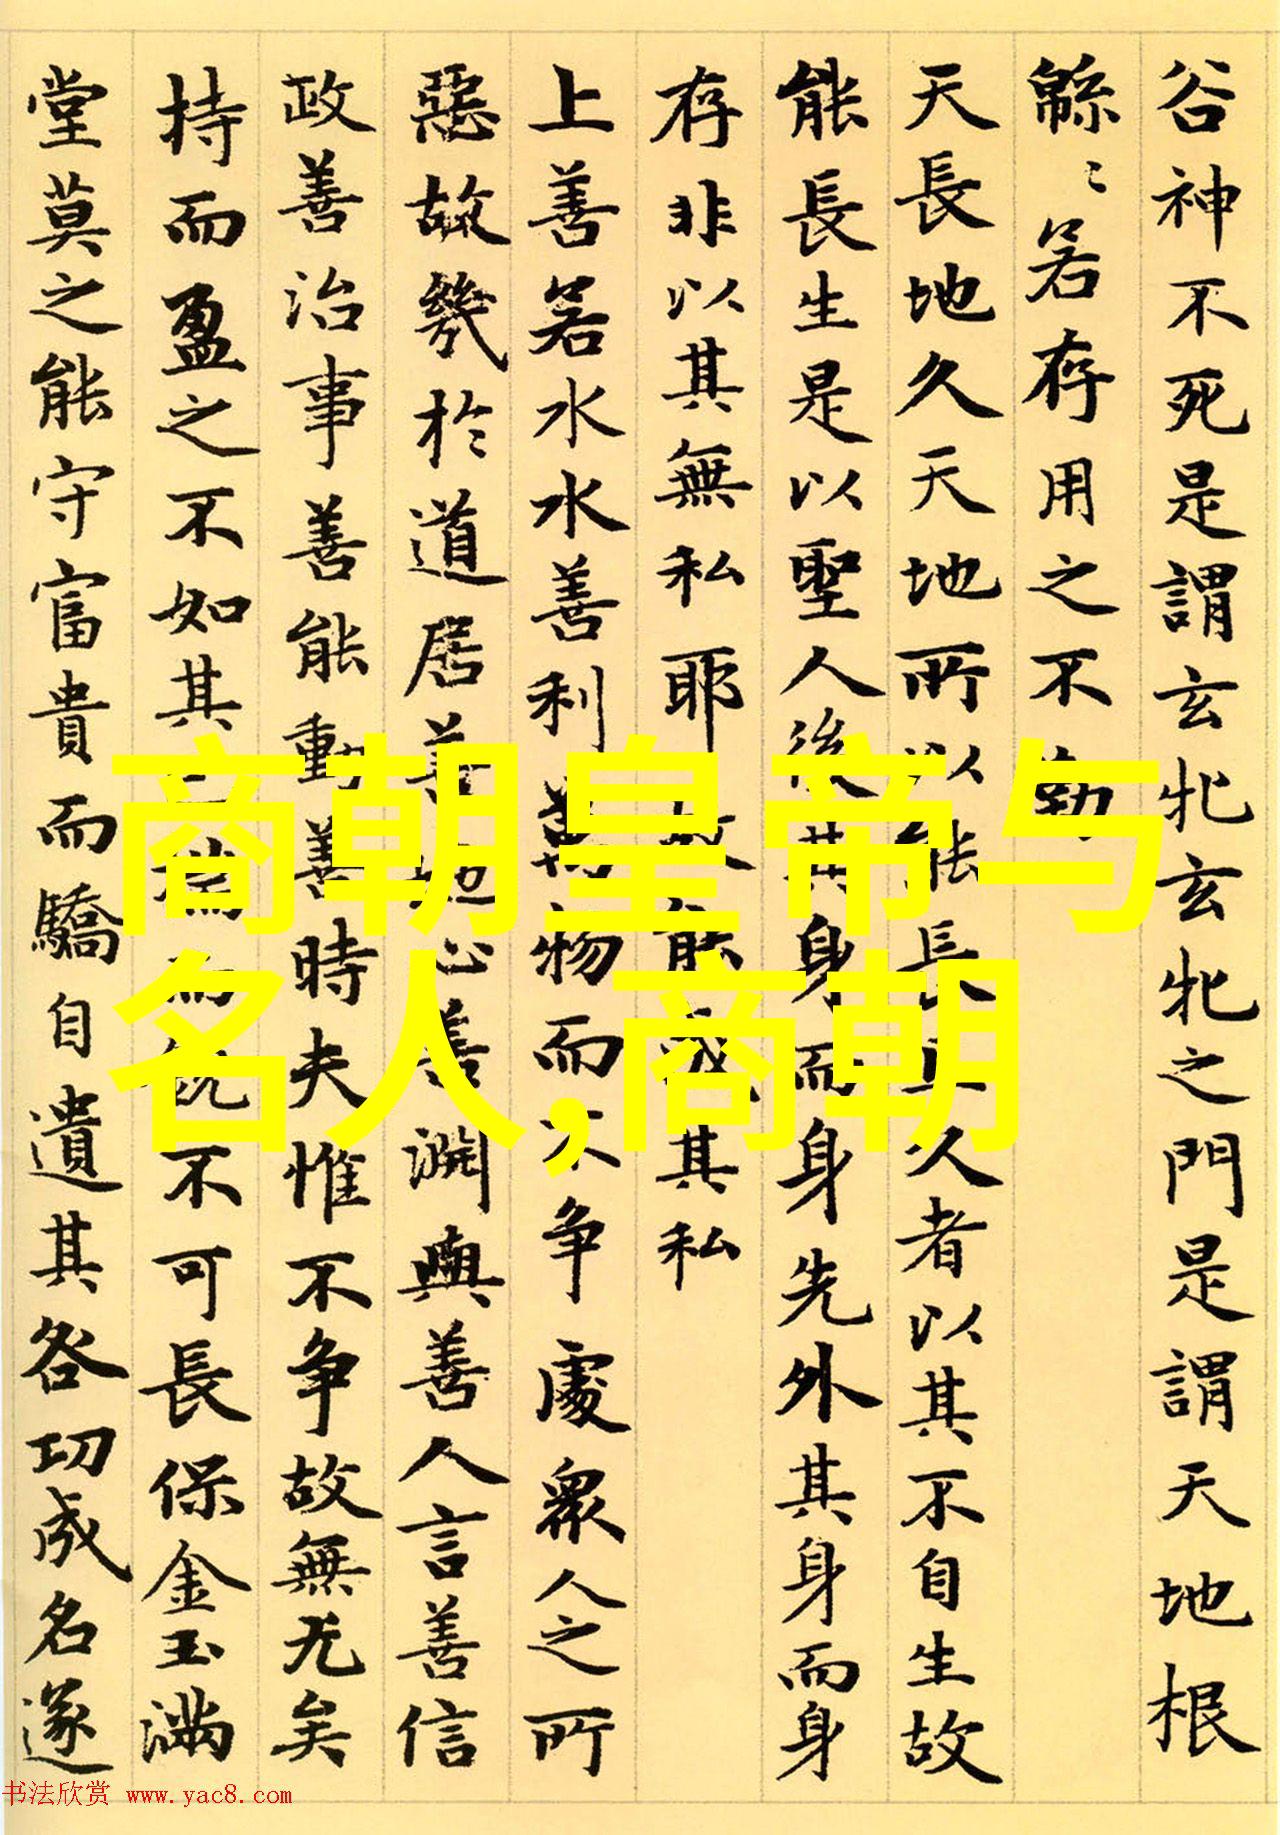 谷神不死是謂玄牝玄牝之門是謂天地根
緜〻若存用之不勤
天長地久天地所以能長且久者以其不自生故
能長生是以聖人後其身而身先外其身而身
存非以其無私耶故能成其私
上善若水水善利萬物而不争處衆人之所
惡故幾於道居善地心善渊與善人言善信
政善治事善能動善時夫惟不争故無尤矣
持而盈之不如其而不可長保金玉滿
堂莫之能守富貴而驕自遺其咎功成名遂
商朝皇帝与
名人,商朝
书法欣赏 www.yac8.com